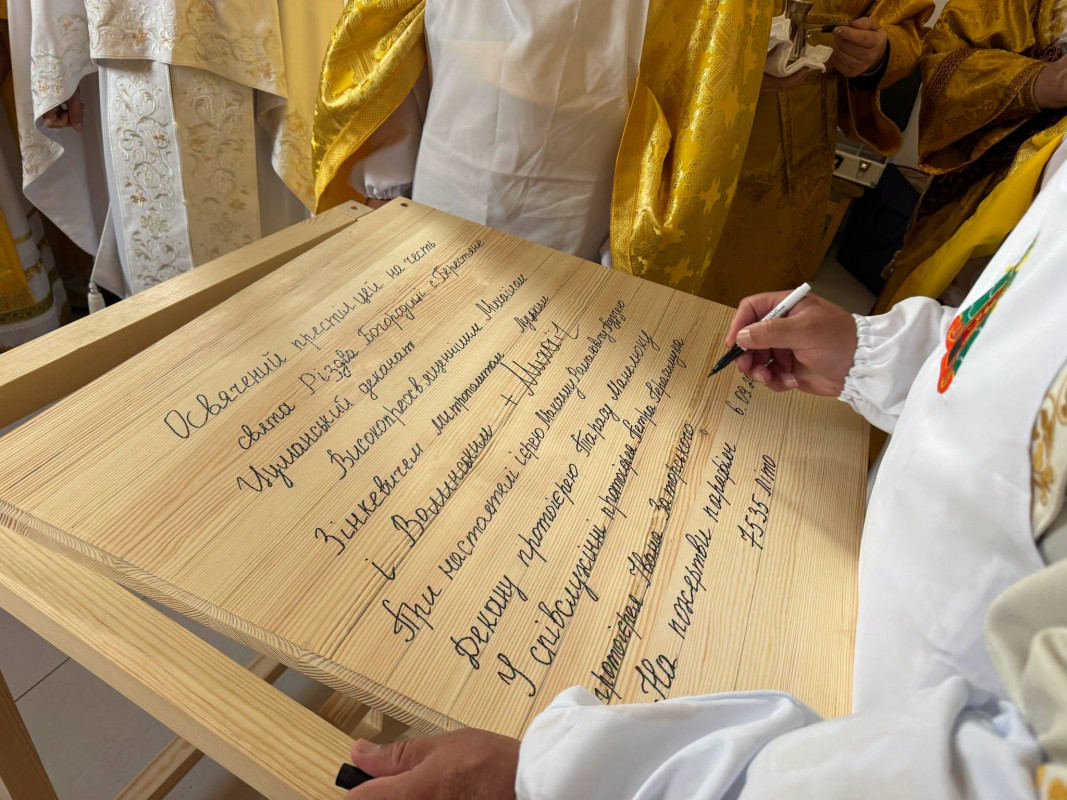 Освячений престил цей на честь
свята Різдва Богородиці с. Берестяне
Цуманський деканат
Високопреосвященнішим Михаїлом
Зінкевичем митрополитом Луцьким
і Волинським + Михаїл
При настоятелі ієрею Максиму
декану протоієрею Тарасу Манелюку
У співслужінні протоієрея Петра
протоієрея Івана
На пожертви парафіян 6.09.2
7535 літо